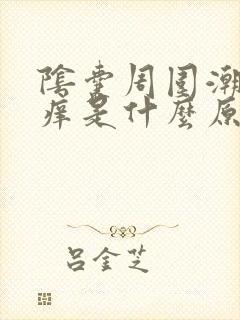 陰囊周围潮
痒是什麼原
吕金芝